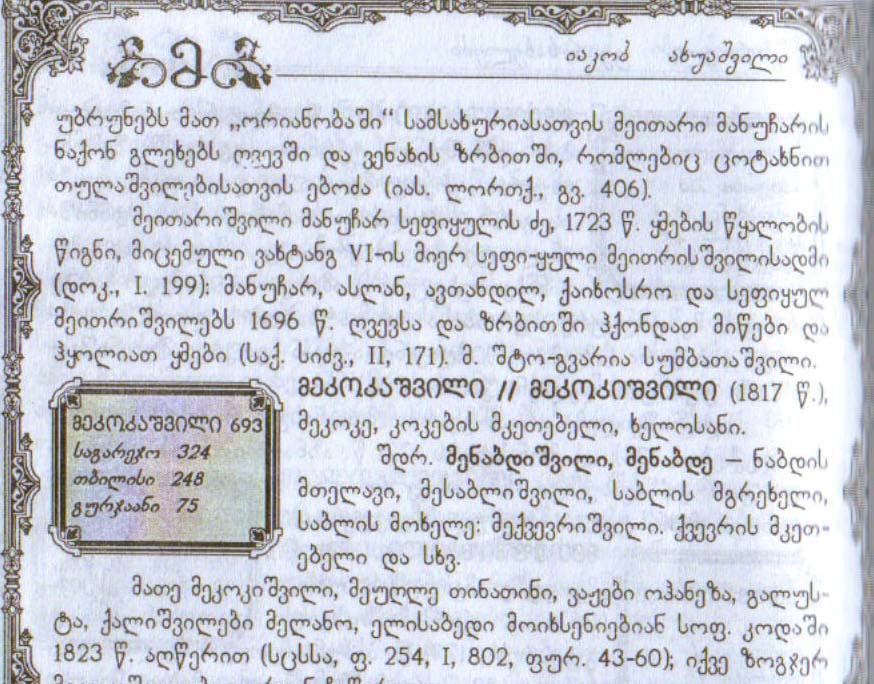 მ
იაკობ ახუაშვილი
უბრუნებს მათ „ორიანობაში“ სამსახურიასათვის მეითარი მანუჩარის
ნაქონ გლეხებს ღვევში და ვენახის ზრბითში, რომლებიც ცოტახნით
თულაშვილებისათვის ებოძა (იას. ლორთქ., გვ. 406).
მეითარიშვილი მანუჩარ სეფიყულის ძე, 1723 წ. ყმების წყალობის
წიგნი, მიცემული ვახტანგ VI-ის მიერ სეფი-ყული მეითრისშვილისადმი
(დოკ., I. 199): მანუჩარ, ასლან, ავთანდილ, ქაიხოსრო და სეფიყულ
მეითრიშვილებს 1696 წ. ღვევსა და ზრბითში ჰქონდათ მიწები და
ჰყოლიათ ყმები (საქ. სიძვ., II, 171). მ. შტო-გვარია სუმბათაშვილი.
მეკოკაშვილი // მეკოკიშვილი (1817 წ.),
მეკოკე, კოკების მკეთებელი, ხელოსანი.
შდრ. მენაბდიშვილი, მენაბდე – ნაბდის
მთელავი, მესაბლიშვილი, საბლის მგრეხელი,
საბლის მოხელე: მექვევრიშვილი. ქვევრის მკეთ-
ებელი და სხვ.
მეკოკაშვილი 693
საგარეჯო 324
თბილისი 248
გურჯაანი 75
მათე მეკოკიშვილი, მეუღლე თინათინი, ვაჟები ოჰანეზა, გალუს-
ტა, ქალიშვილები მელანო, ელისაბედი მოიხსენიებიან სოფ. კოდაში
1823 წ. აღწერით (სცსსა, ფ. 254, I, 802, ფურ. 43-60); იქვე ზოგჯერ